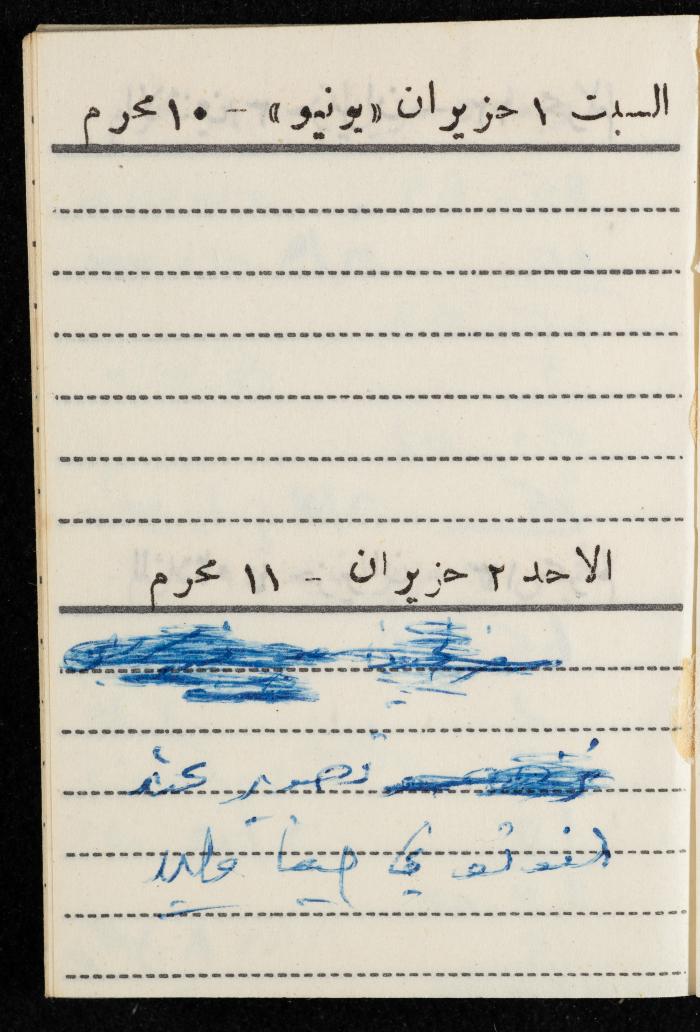 السبت ١ حزيران «يونيو» - ١٠ محرم
الاحد ٢ حزيران - ١١ محرم
تصوير عند
في حيفا